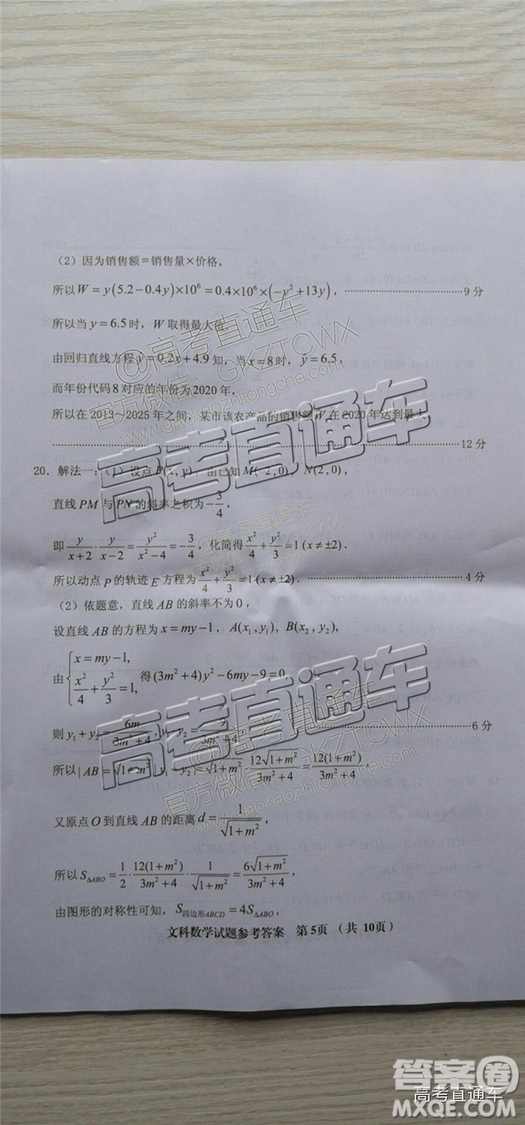 （2）因为销售额＝销售量×价格，
所以 W = y(5.2−0.4y)×10⁶ = 0.4×10⁶×(−y²+13y)， 9 分
所以当 y = 6.5 时，W 取得最大值.
由回归直线方程 ŷ=0.2x+4.9 知，当 x=8 时，ŷ=6.5，
而年份代码 8 对应的年份为 2020 年，
所以在 2013～2025 年之间，某市该农产品的销售额 W 在 2020 年达到最大.
12 分
20. 解法一：（1）设点 P(x, y)，由已知 M(−2,0)，N(2,0)，
直线 PM 与 PN 的斜率之积为 −3/4，
即 y/(x+2)·y/(x−2) = y²/(x²−4) = −3/4，化简得 x²/4 + y²/3 = 1 (x≠±2).
所以动点 P 的轨迹 E 方程为 x²/4 + y²/3 = 1 (x≠±2). 4 分
（2）依题意，直线 AB 的斜率不为 0，
设直线 AB 的方程为 x = my−1，A(x₁, y₁)，B(x₂, y₂)，
由 { x = my−1, x²/4 + y²/3 = 1, 得 (3m²+4)y²−6my−9=0，
则 y₁+y₂ = 6m/(3m²+4)， y₂ = −9/(3m²+4)， 6 分
所以 |AB| = √(1+m²) |y₁−y₂| = √(1+m²) · 12√(1+m²)/(3m²+4) = 12(1+m²)/(3m²+4)
又原点 O 到直线 AB 的距离 d = 1/√(1+m²)，
所以 S△ABO = 1/2 · 12(1+m²)/(3m²+4) · 1/√(1+m²) = 6√(1+m²)/(3m²+4)
由图形的对称性可知，S四边形ABCD = 4S△ABO，
文科数学试题参考答案 第 5页 （共 10页）
高考直通车
@高考直通车
官方微信:GKZTCWX
高考直通车
高考直通车
官方微信:GKZTCWX
答案圈
高考直通车
MXQE.COM